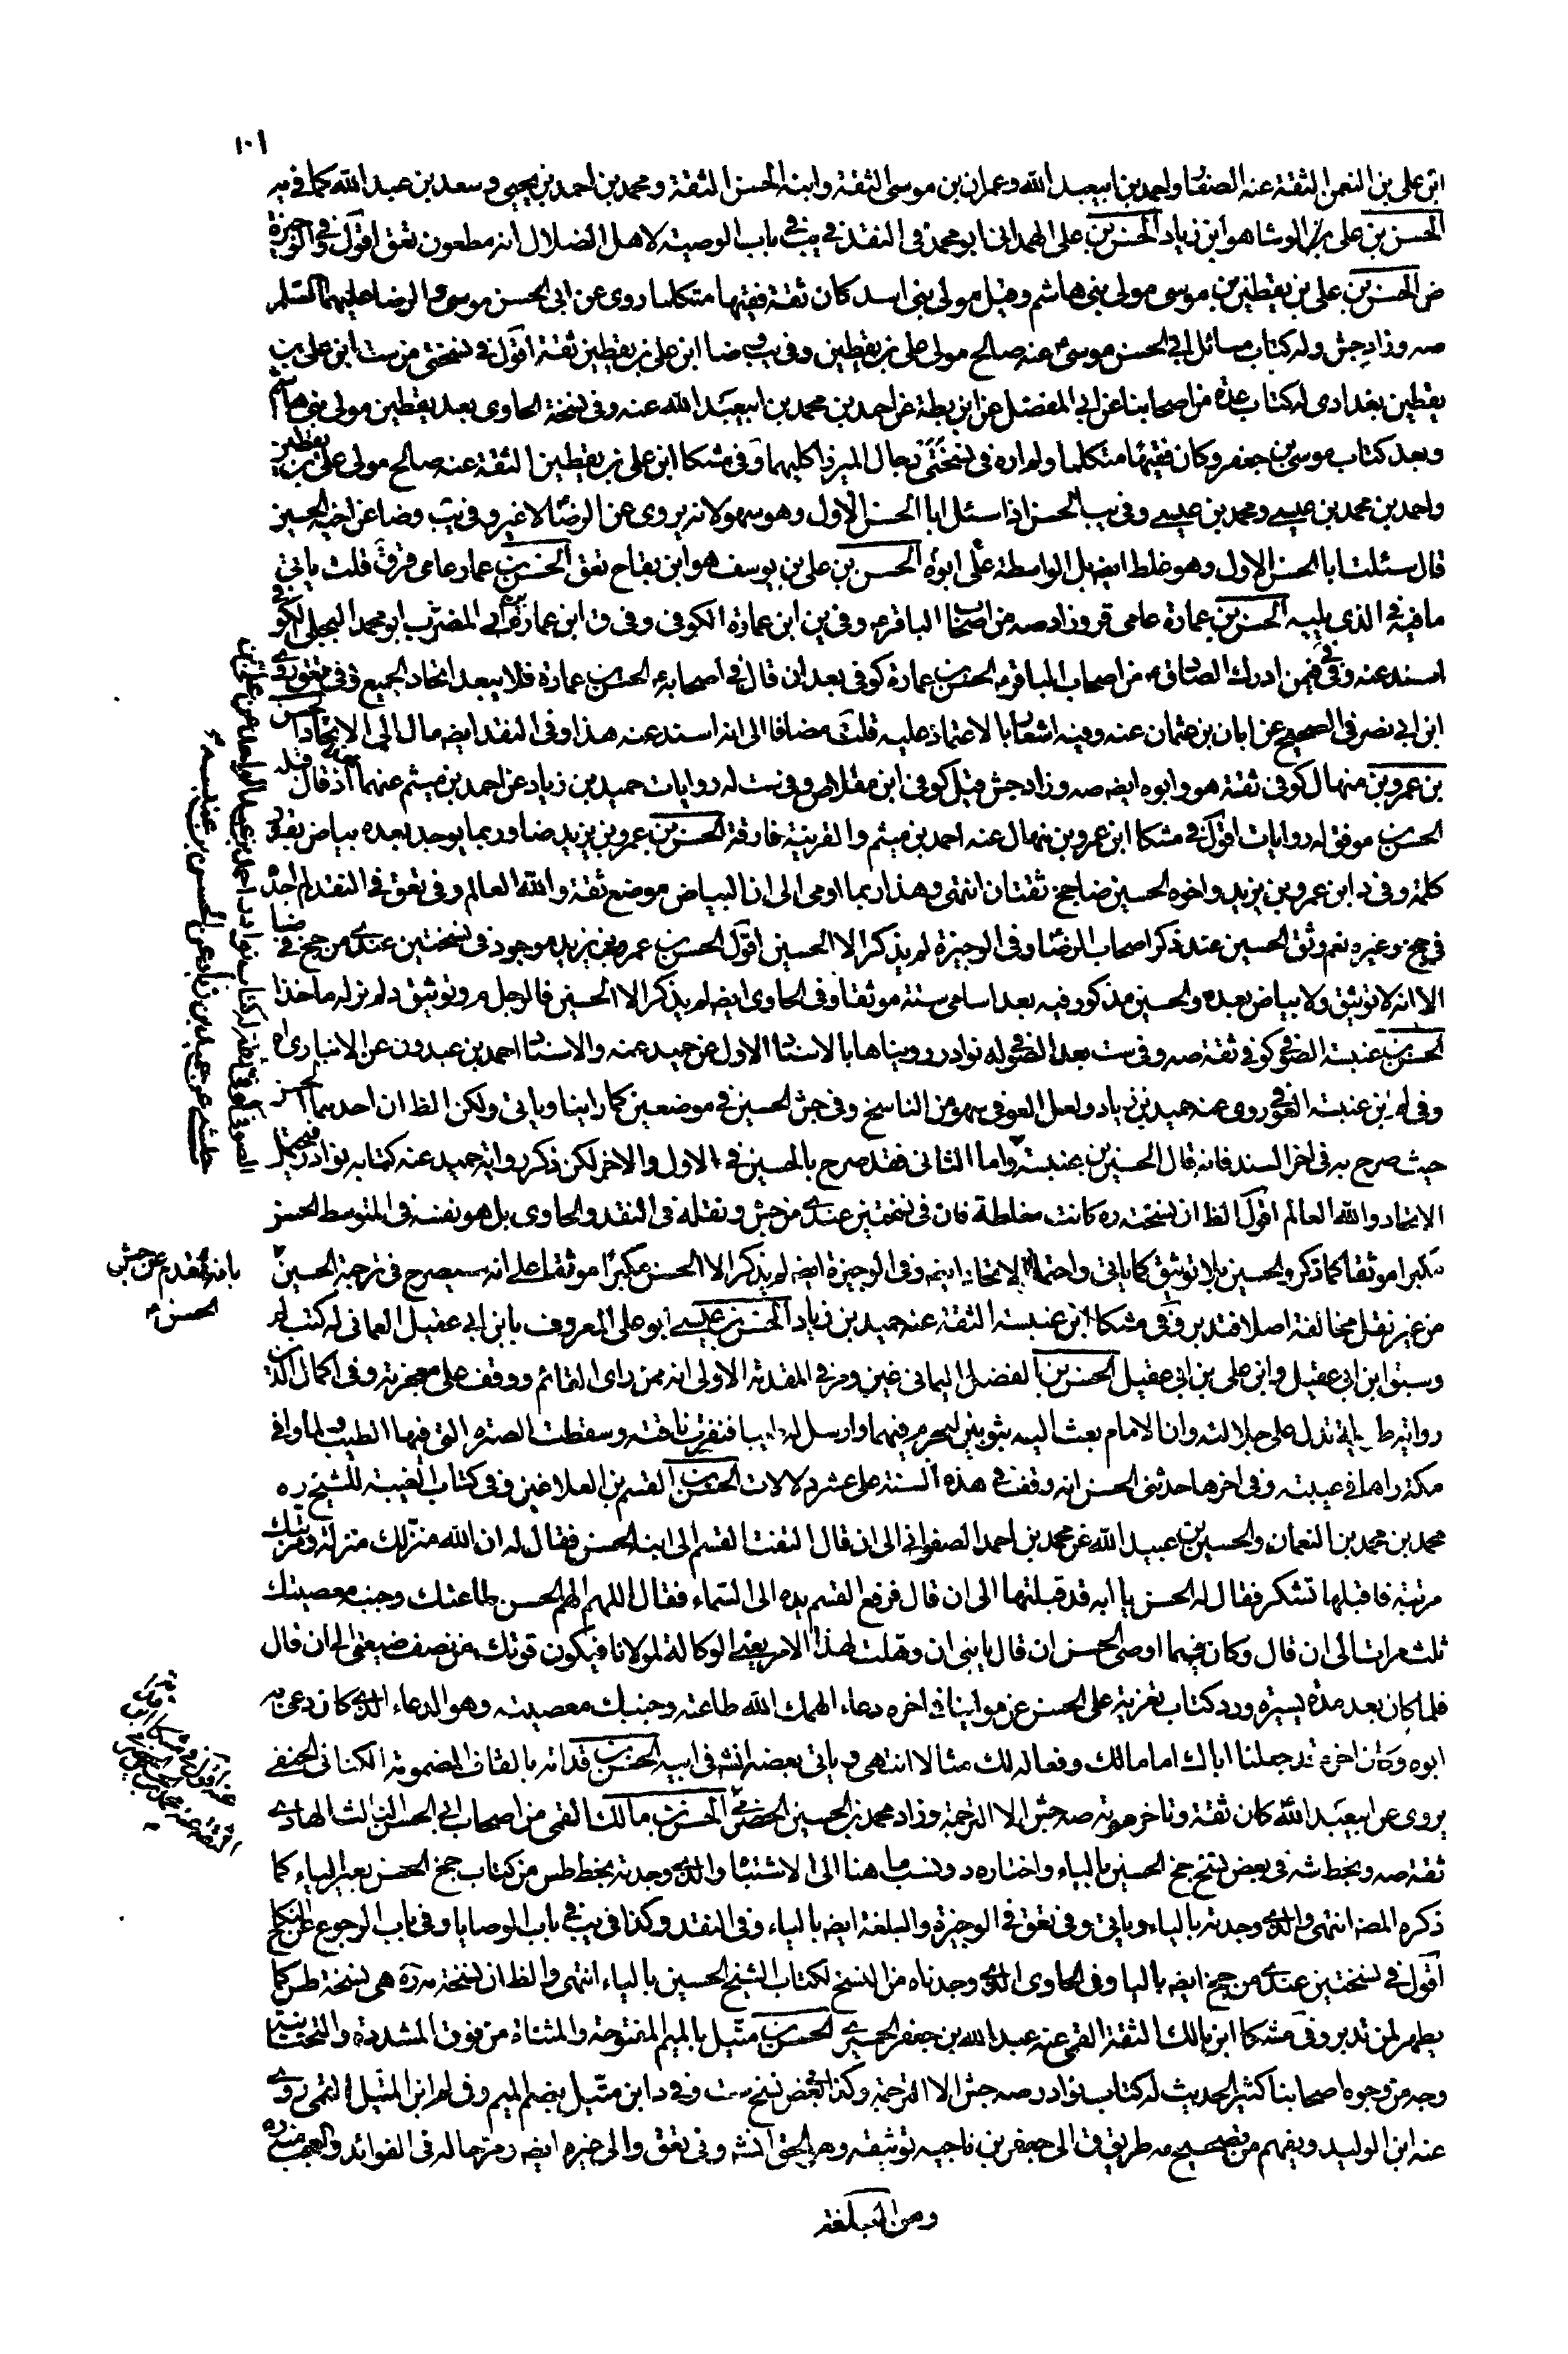 ١٠١
ابن على بن النعمن الثقة عنه الصفار واحمد بن ابيعبد الله وعمران بن موسى الثقة وابنه الحسن الثقة ومحمد بن احمد بن يحيى وسعد بن عبد الله كما فى
الحسن بن على الوشا هو ابن زياد الحسن بن على الهمدانى ابو محمد فى النقد فى يب فى باب الوصية لاهل الضلال انه مطعون تعق اقول فى الوجيزة
ض الحسن بن على بن يقطين بن موسى مولى بنى هاشم وقيل مولى بنى اسد كان ثقة فقيها متكلما روى عن ابى الحسن موسى والرضا عليهما السلم
صه وزاد جش وله كتاب مسائل ابى الحسن موسى عنه صالح مولى على بن يقطين وفى ضا ابن على بن يقطين ثقة اقول فى نسختى من ست ابن على بن
يقطين بغدادى له كتاب عدة من اصحابنا عن ابى المفضل عن ابن بطة عن احمد بن محمد بن ابيعبد الله عنه وفى نسخة الحاوى بعد يقطين مولى بنى هاشم
وبعد كتاب موسى بن جعفر وكان فقيها متكلما ولم اره فى نسختى رجال الميرزا كليهما وفى مشكا ابن على بن يقطين الثقة عنه صالح مولى على بن يقطين
واحمد بن محمد بن عيسى ومحمد بن عيسى وفى يب الحسن اذا سئل ابا الحسن الاول وهو سهو لانه يروى عن الرضا لا غير وفى يب وضا عن اخيه الحسين
قال سئلت ابا الحسن الاول وهو غلط ايضا بل الواسطة على ابوه الحسن بن على بن يوسف هو ابن بقاح تعق الحسن بن عماد عامى قر ق قلت ياتى
ما فيه فى الذى يليه الحسن بن عمارة عامى قر وزاد صه من اصحاب الباقر وفى ين ابن عمارة الكوفى وفى ق ابن عمارة بن المضرب ابو محمد البجلى الكوفى
اسند عنه وفى قر فيمن ادرك الصادق من اصحاب الباقر الحسن بن عمارة كوفى بعد ان قال فى اصحابه الحسن بن عمارة فلا يبعد اتحاد الجميع وفى تعق روى
ابن ابى نصر فى الصحيح عن ابان بن عثمان عنه وفيه اشعار بالاعتماد عليه قلت مضافا الى انه اسند عنه هذا وفى النقد ايضه مال الى الاتحاد الحسن
بن عمرو بن منهال كوفى ثقة هو وابوه ايضه صه وزاد جش قبل كوفى ابن مقلاص وفى ست له روايات حميد بن زياد عن احمد بن ميثم عنهما اذ قال قبله
الحسن بن موفق له روايات اقول فى مشكا ابن عمرو بن منهال عنه احمد بن ميثم والقرينة فارقة الحسن بن عمرو بن يزيد ضا وربما يوجد بعده بياض بقدر
كلمة وفى د ابن عمرو بن يزيد واخوه الحسين ضا جخ ثقتان انتهى وهذا ربما اومى الى ان البياض موضع ثقة والله العالم وفى تعق فى النقد لم اجده
فى جخ وغيره نعم وثق الحسين عند ذكر اصحاب الرضا وفى الوجيزة لم يذكر الا الحسين اقول الحسن بن عمرو بن يزيد موجود فى نسختين عندى من جخ فى ضا
الا انه لا توثيق ولا بياض بعده والحسين مذكور فيه بعد اسامى ستة موثقا وفى الحاوى ايضه لم يذكر الا الحسين فالرجل م وتوثيق د لم نر له ماخذا
الحسن بن عنبسة الصوفى كوفى ثقة صه وفى ست بعد الصوفى له نوادر رويناها بالاسناد الاول عن حميد عنه والاسناد احمد بن عبدون عن الانبارى اه
وفى لم ابن عنبسة العوفى روى عنه حميد بن زياد ولعل العوفى سهو من الناسخ وفى جش الحسين فى موضعين كما راينا وياتى ولكن الظ ان احدهما الحسن
حيث صرح به فى اخر السند فانه قال الحسين بن عنبسة واما الثانى فقد صرح بالحسين فى الاول والاخر لكن ذكر رواية حميد عنه كتابه نوادر فيحتمل
الاتحاد والله العالم اقول الظ ان نسخته ره كانت مغلطة فان فى نسختين عندى من جش ونقله فى النقد والحاوى بل هو نفسه فى المتوسط الحسن
مكبرا موثقا كما ذكر والحسين بلا توثيق كما ياتى واحتمال الاتحاد ايضه وفى الوجيزة ايضه لم يذكر الا الحسن مكبرا موثقا على انه سيصرح فى ترجمة الحسين
من غير نقل مخالفة اصلا فتدبر وفى مشكا ابن عنبسة الثقة عنه حميد بن زياد الحسن بن عيسى ابو على المعروف بابن ابى عقيل العمانى له كتب لم
وسبق ابن ابى عقيل وابن على بن ابى عقيل الحسن بن الفضل اليمانى غير ومر فى المقدمة الاولى انه ممن راى القائم ووقف على معجزته وفى اكمال الدين
رواية تدل على جلالته وان الامام بعث اليه بثوبين ليحرم فيهما وارسل له فنفرت ناقته وسقطت الصره التى فيها الطيب ولما وافى
مكة راها فى عيبته وفى اخرها حدثنى الحسن انه وقف فى هذه السنة على عشر دلالات الحسن بن القسم بن العلا غير وفى كتاب الغيبة للشيخ ره
محمد بن محمد بن النعمان والحسين بن عبيد الله عن محمد بن احمد الصفوانى الى ان قال التفت القسم الى ابنه الحسن فقال له ان الله منزلك منزلة ومرتبك
مرتبة فاقبلها تشكر فقال له الحسن يا ابه قد قبلتها الى ان قال فرفع القسم يده الى السماء فقال اللهم الهم الحسن طاعتك وجنبه معصيتك
ثلث مرات الى ان قال وكان فيما اوصى الحسن ان قال يا بنى ان وهلت لهذا الامر يعنى الوكالة لمولانا فيكون قوتك من نصف ضيعتى الى ان قال
فلما كان بعد مدة يسيرة ورد كتاب تعزية على الحسن عن مولينا فى اخره دعاء الهمك الله طاعته وجنبك معصيته وهو الدعاء الذى كان دعى به
ابوه وكان اخره قد جعلنا اباك اماما لك وفعاله لك مثالا انتهى وياتى بعضه انشه فى ابيه الحسن بن قدامة بالقاف المضمومة الكنانى الحنفى
يروى عن ابيعبد الله كان ثقة وتاخر موته صه جش الا الترجمة وزاد محمد بن الحسين الحضرمى الحسن بن مالك القمى من اصحاب ابى الحسن الثالث الهادى
ثقة صه وبخط شه فى بعض نسخ جخ الحسين بالياء واختاره د ونسب ما هنا الى الاشتباه والذى وجدته بخط طس من كتاب جخ الحسن بغير الياء كما
ذكره المصه انتهى والذى وجدته بالياء وياتى وفى تعق فى الوجيزة والبلغة ايضه بالياء وفى النقد وكذا فى يب فى باب الوصايا وفى باب الرجوع عن النكاح
اقول فى نسختين عندى من جخ ايضه باليا وفى الحاوى الذى وجدناه من النسخ لكتاب الشيخ الحسين بالياء انتهى والظ ان نسخته ره هى نسخة طس كما
يظهر لمن تدبر وفى مشكا ابن مالك الثقة القمى عنه عبد الله بن جعفر الحميرى الحسن بن متيل بالميم المفتوحة والمثناة من فوق المشددة والتحتانية
وجه من وجوه اصحابنا كثير الحديث له كتاب نوادر صه جش الا الترجمة وكذا بعض نسخ ست وفى د ابن متيل بضم الميم وفى لم ابن المتيل القمى روى
عنه ابن الوليد ويفهم من تصحيح مه طريق ق الى جعفر بن ناجيه توثيقه وهو الحق انشه وفى تعق والى غيره ايضه ومر حاله فى الفوائد والعجب منه ره
ومن البلغة
بانه تقدم عن جش
الحسن م